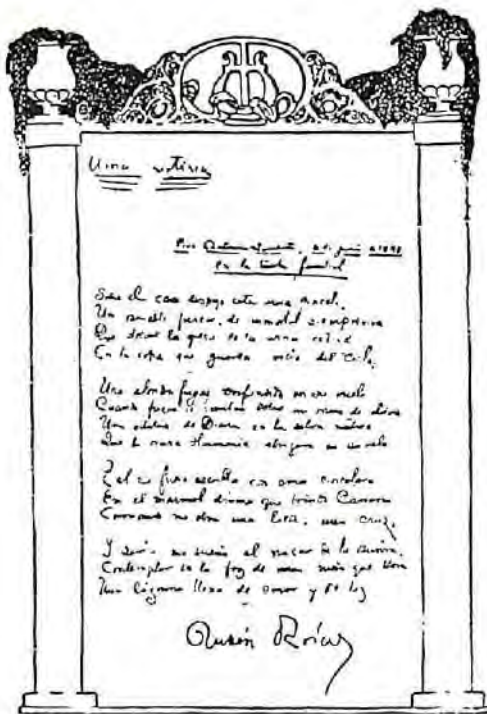 Urna votiva
en la
Sobre el caro despojo esta urna
Un amable frescor de inmortal siempreviva
Que decore la greca de la urna votiva
En la copa que guarda rocío del cielo;
Una alondra fugaz sorprendida en su vuelo
Cuando fuese a cantar rama de oliva
Una de Diana en la selva nativa
Que la Musa Harmonía en su velo
Tal si fuese escultor con amor cincelara
En el marmol divino que brinda Carrara
Coronando mi obra una lira, una cruz;
Y sería mi sueño al nacer de la aurora,
Contemplar en la faz de una niña que llora
Una lágrima llena de amor y de luz
Rubén Darío